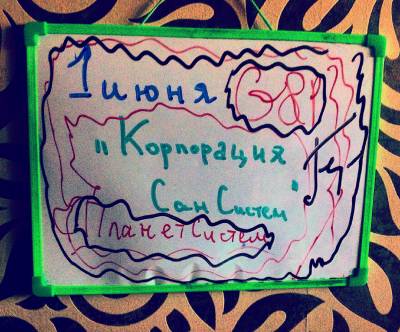 1 июня
"Корпорация
Сан Систем"
ПланетСистем